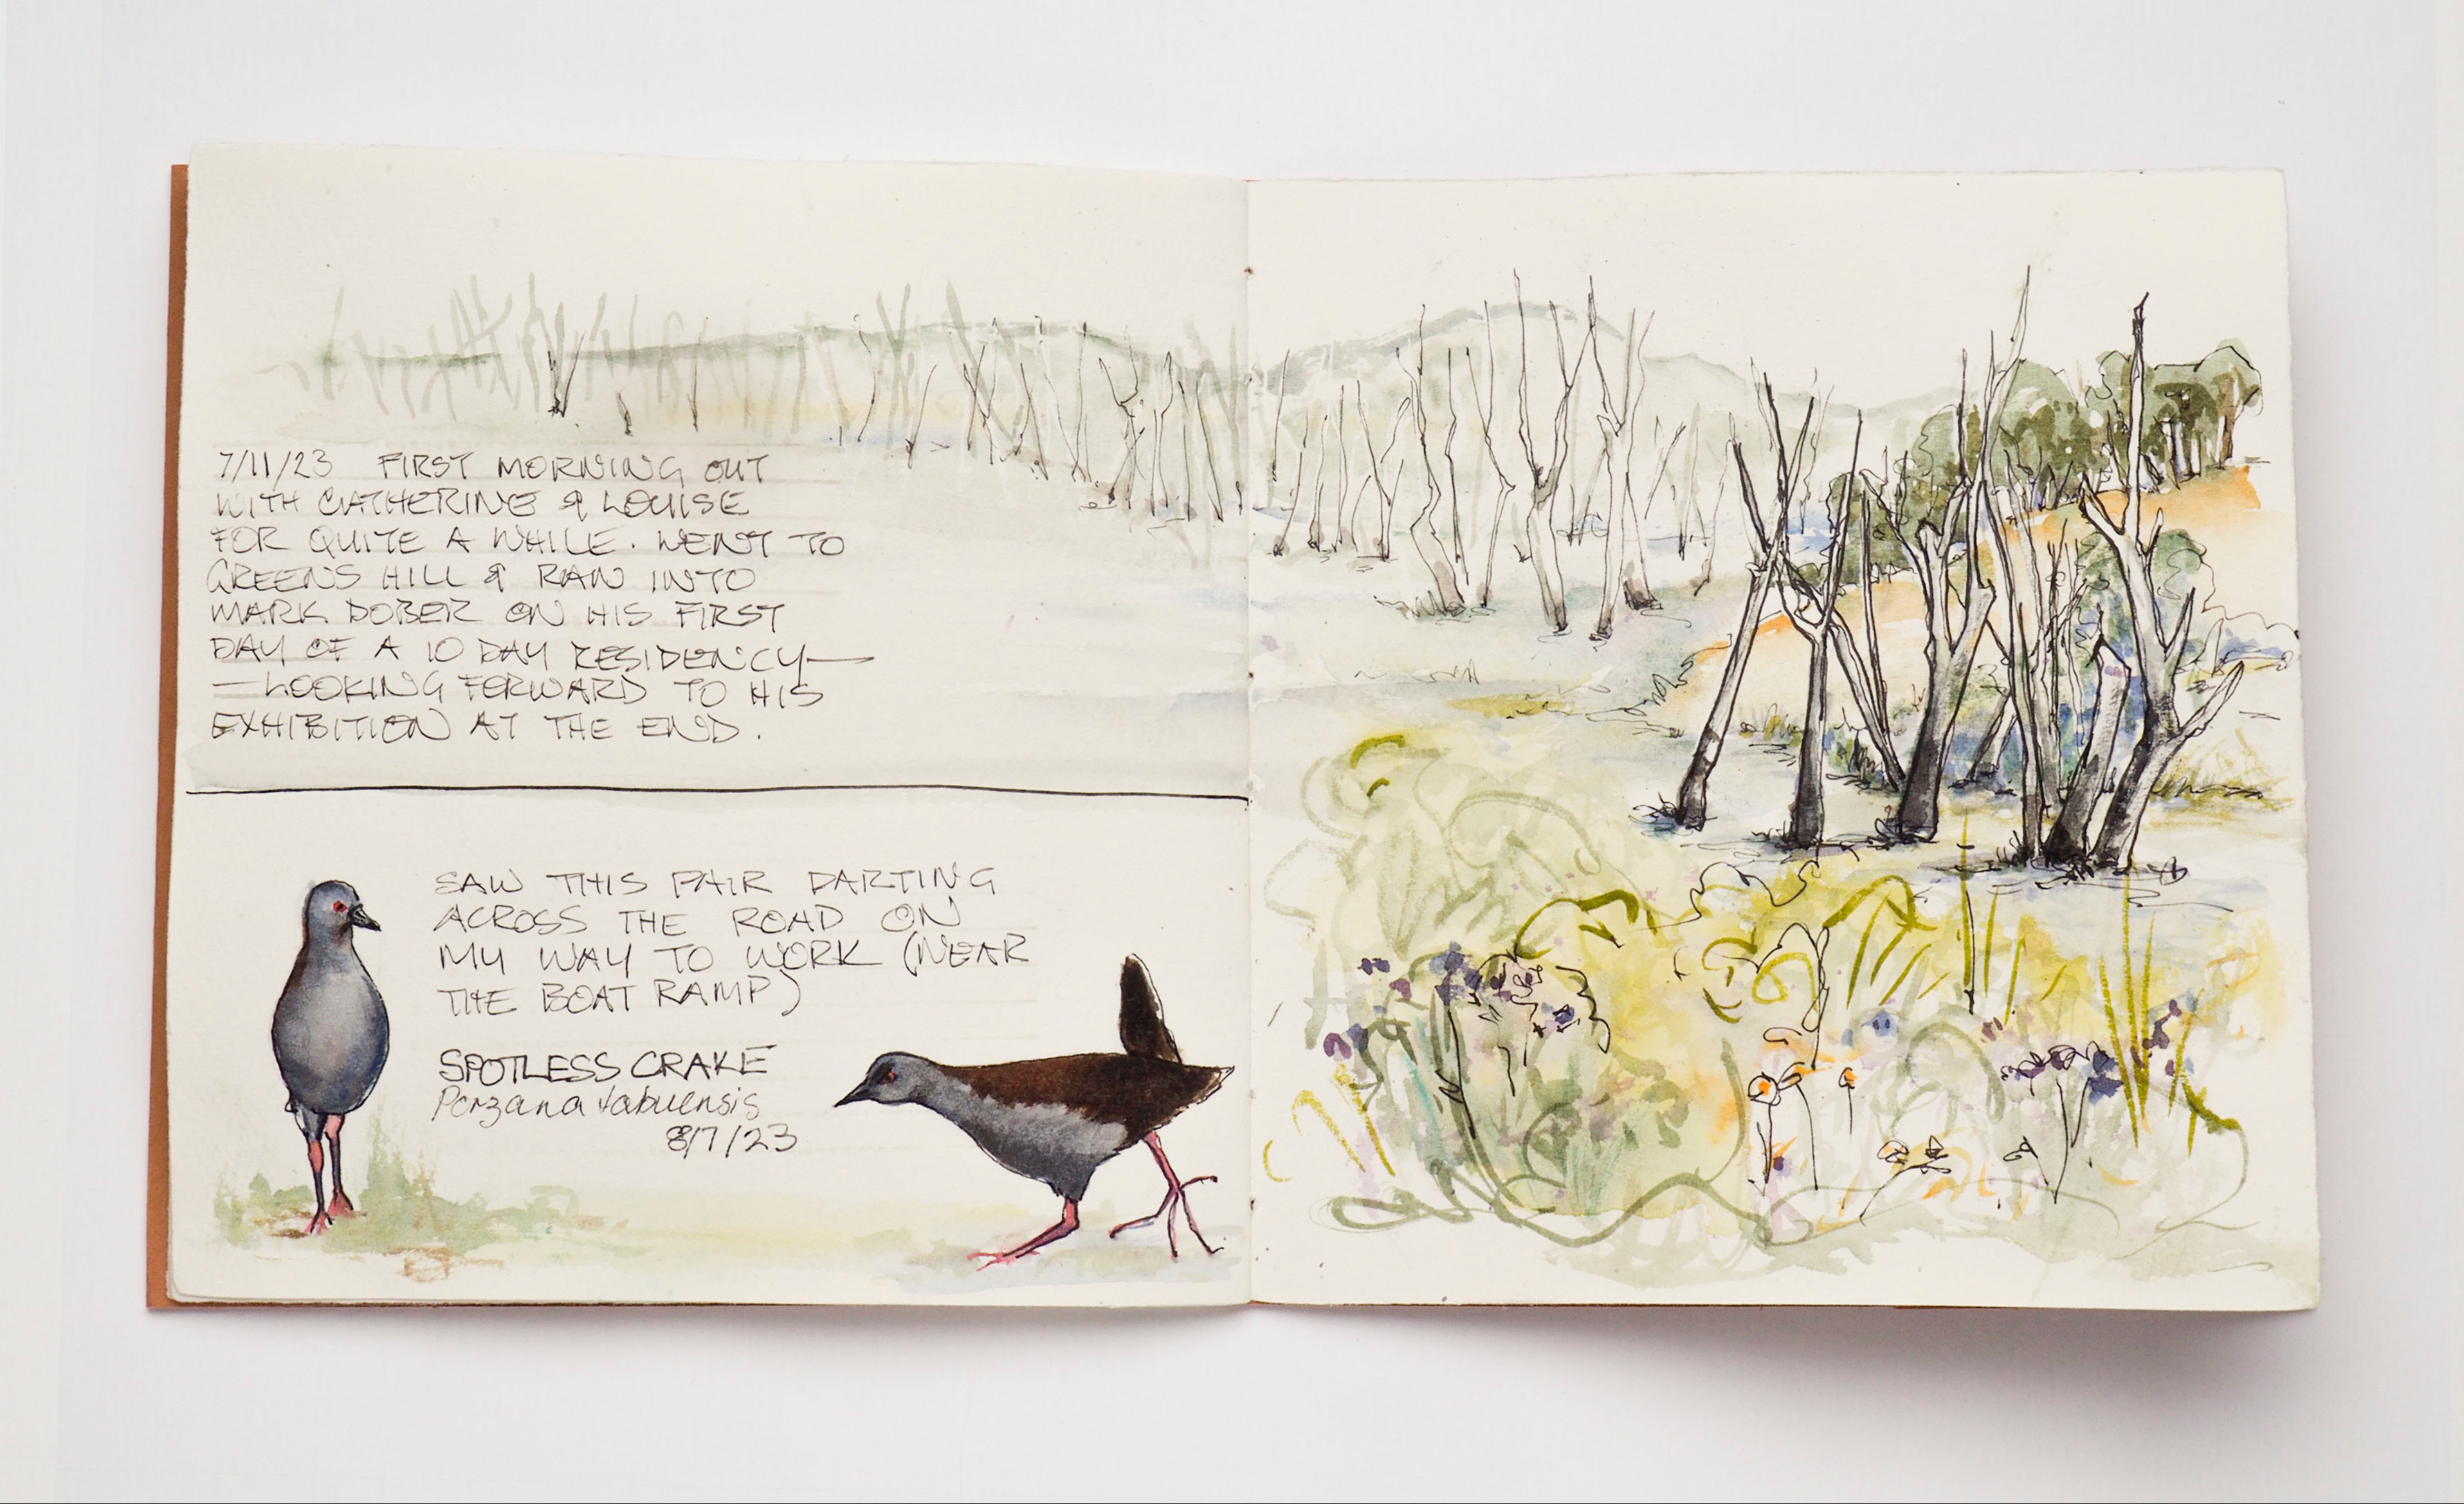 7/11/23 FIRST MORNING OUT
WITH CATHERINE & LOUISE
FOR QUITE A WHILE. WENT TO
GREENS HILL & RAN INTO
MARK DOBER ON HIS FIRST
DAY OF A 10 DAY RESIDENCY—
—LOOKING FORWARD TO HIS
EXHIBITION AT THE END.
SAW THIS PAIR DARTING
ACROSS THE ROAD ON
MY WAY TO WORK (NEAR
THE BOAT RAMP)
SPOTLESS CRAKE
Porzana tabuensis
8/7/23